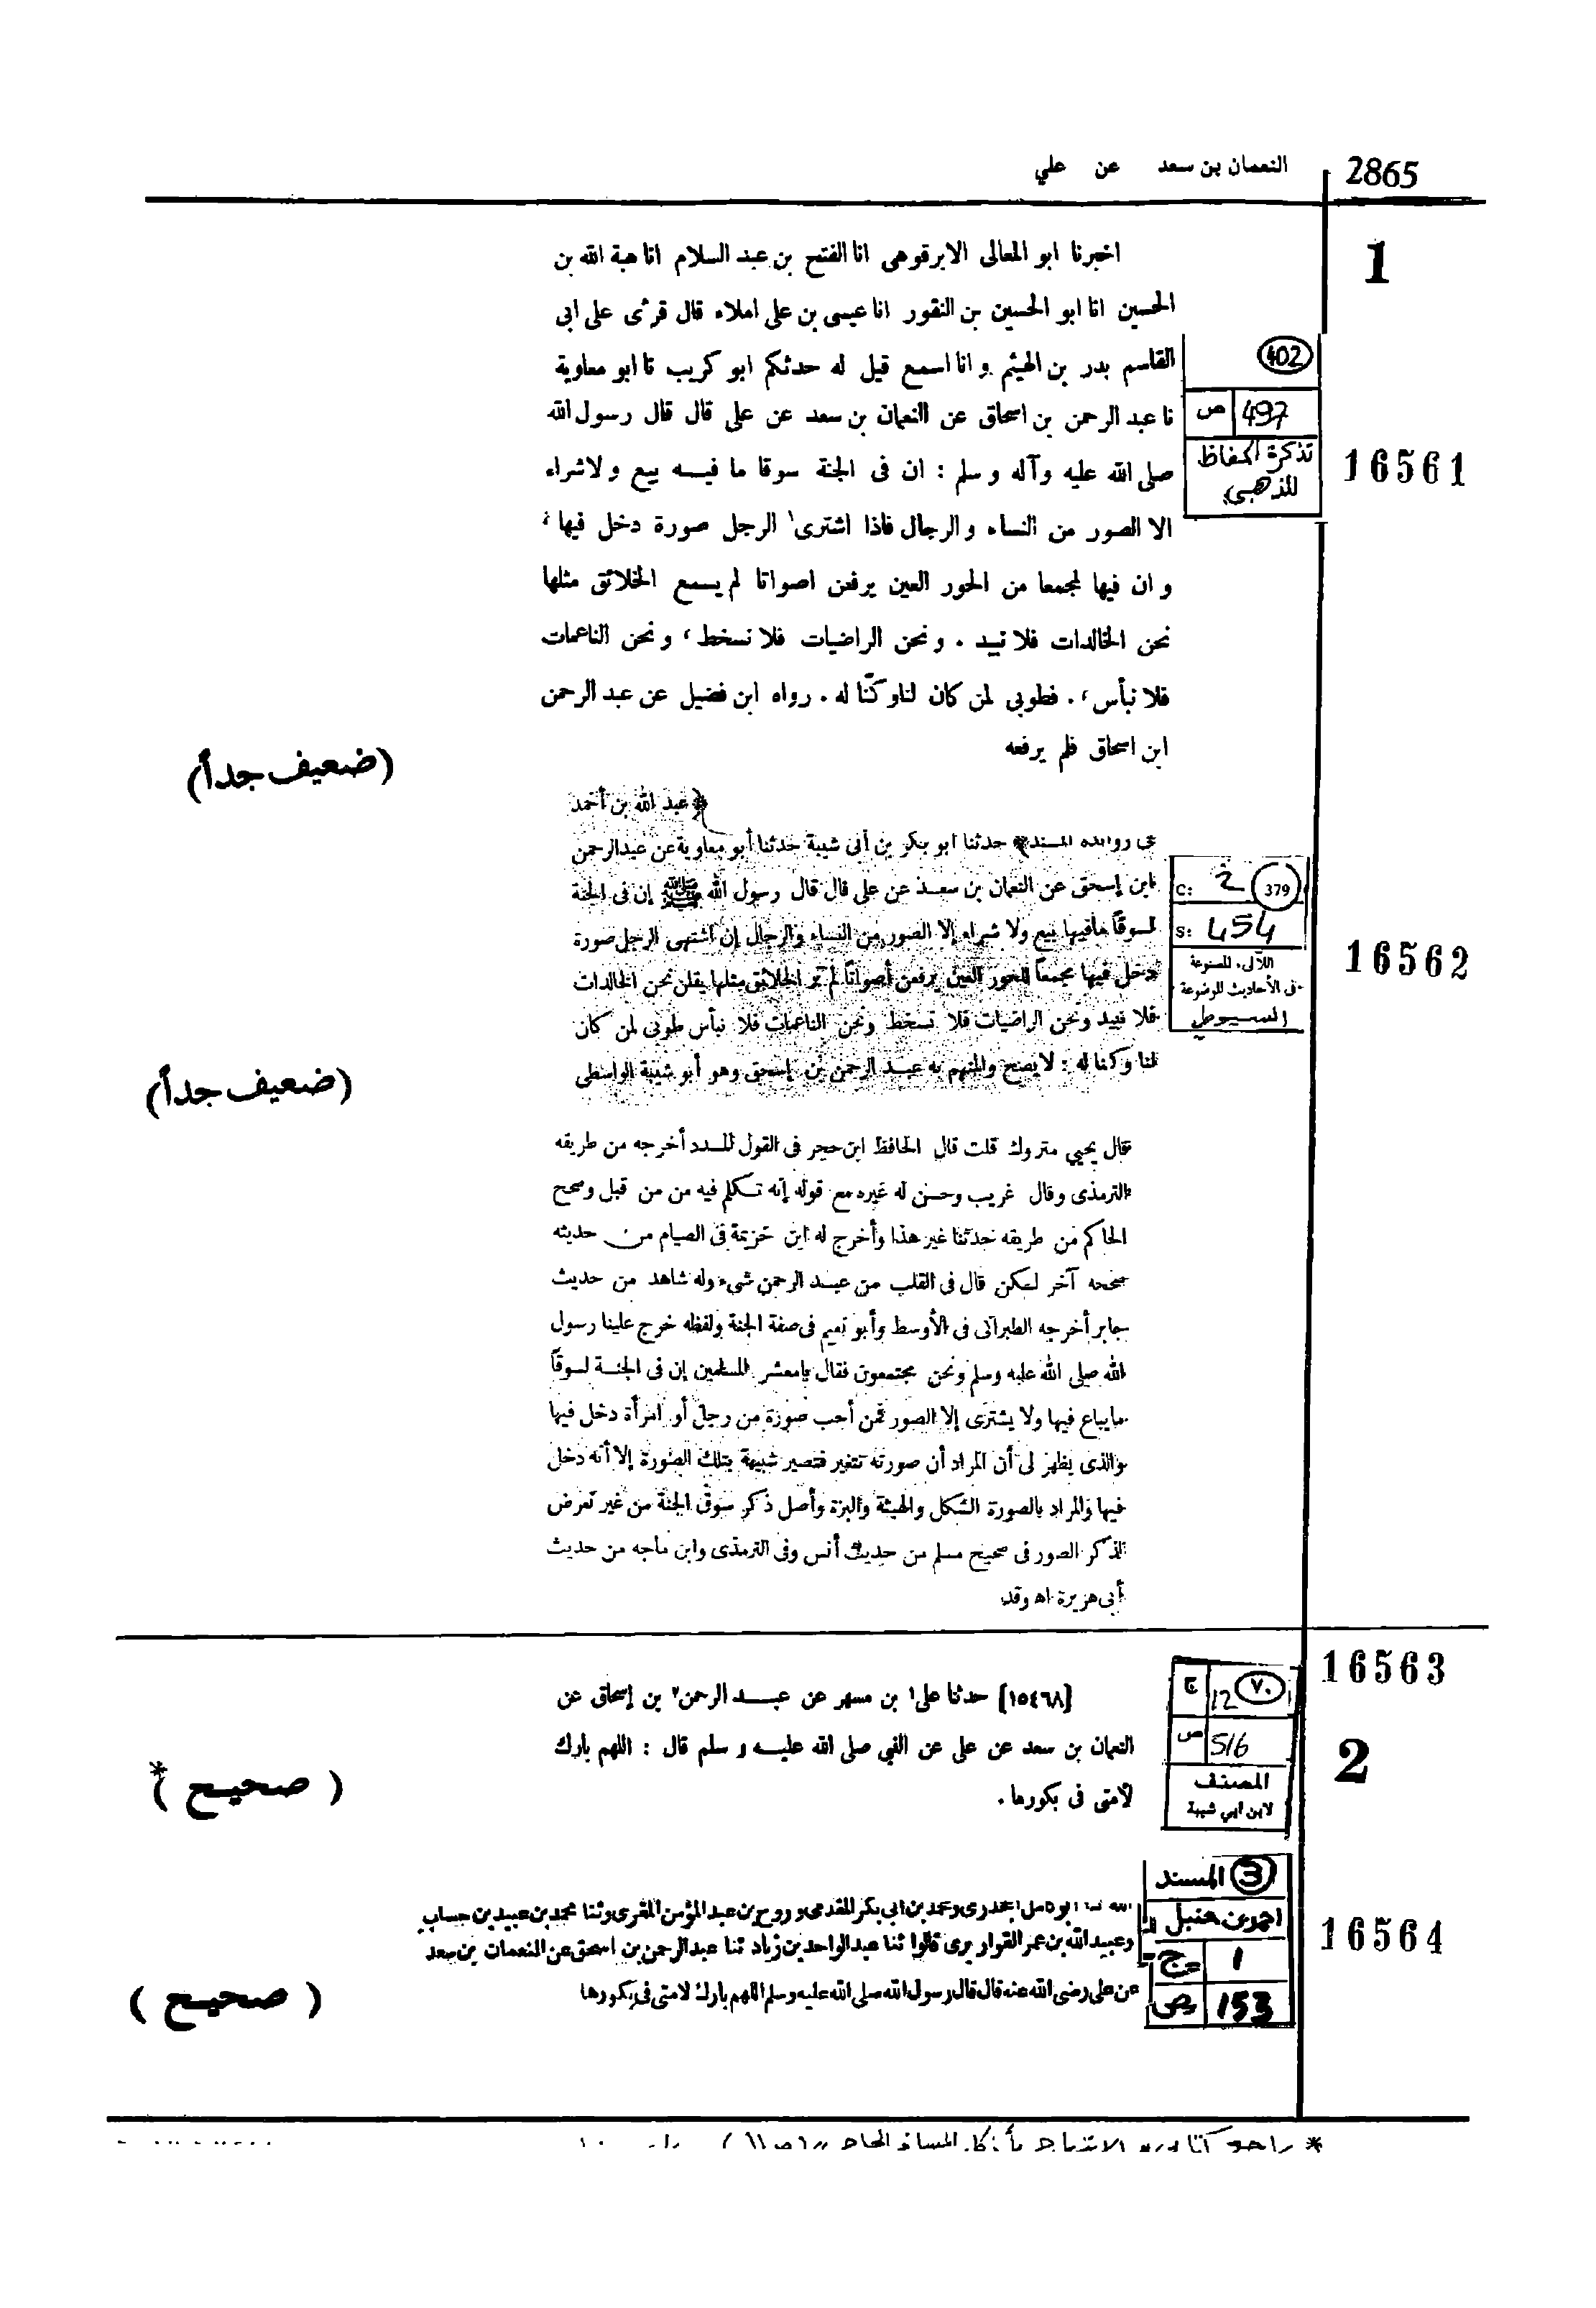 2865
النعمان بن سعد عن علي
1
اخبرنا ابو المعالى الابرقوهى انا الفتح بن عبد السلام انا هبة الله بن
الحسين انا ابو الحسين بن النقور انا عيسى بن على املاء قال قرئى على ابى
القاسم بدر بن الهيثم و انا اسمع قيل له حدثكم ابو كريب نا ابو معاوية
نا عبد الرحمن بن اسحاق عن النعمان بن سعد عن على قال قال رسول الله
صلى الله عليه وآله وسلم : ان فى الجنة سوقا ما فيسه بيع ولا شراء
الا الصور من النساء والرجال فاذا اشترى١ الرجل صورة دخل فيها ،
و ان فيها لمجمعا من الحور العين يرفعن اصواتا لم يسمع الخلائق مثلها
نحن الخالدات فلا نبيد . ونحن الراضيات فلا نسخط ، ونحن الناعمات
فلا نبأس ، . فطوبى لمن كان لنا وكنّا له . رواه ابن فضيل عن عبد الرحمن
ابن اسحاق فلم يرفعه
402
497 ص
تذكرة الحفاظ
للذهبي
16561
(ضعيف جداً)
﴿ عبد الله بن أحمد
فى زوائده المسند﴾ حدثنا أبو بكر بن أبى شيبة حدثنا أبو معاوية عن عبدالرحمن
ابن إسحق عن النعمان بن سعد عن على قال قال رسول الله ﷺ إن فى الجنة
لسوقاً مافيها بيع ولا شراء إلا الصور من النساء والرجال إن اشتهى الرجل صورة
دخل فيها مجمعاً للحور العين يرفعن أصواتاً لم ير الخلائق مثلها يقلن نحن الخالدات
فلا نبيد ونحن الراضيات فلا نسخط ونحن الناعمات فلا نبأس طوبى لمن كان
لنا وكنا له : لا يصح والمتهم به عبد الرحمن بن إسحق وهو أبو شيبة الواسطى
379 C: 2
S: 454
اللآلىء المصنوعة
فى الأحاديث الموضوعة
السيوطي
16562
(ضعيف جداً)
قال يحيى متروك قلت قال الحافظ ابن حجر فى القول المسدد أخرجه من طريقه
الترمذى وقال غريب وحسن له غيره مع قوله إنه تكلم فيه من من قبل وصحح
الحاكم من طريقه حدثنا غير هذا وأخرج له ابن خزيمة فى الصيام من حديثه
صححه آخر لكن قال فى القلب من عبد الرحمن شىء وله شاهد من حديث
جابر أخرجه الطبرانى فى الأوسط وأبو نعيم فى صفة الجنة ولفظه خرج علينا رسول
الله صلى الله عليه وسلم ونحن مجتمعون فقال يامعشر المسلمين إن فى الجنة لسوقاً
مايباع فيها ولا يشترى إلا الصور فمن أحب صورة من رجل أو امرأة دخل فيها
والذى يظهر لى أن المراد أن صورته تتغير فتصير شبيهة بتلك الصورة إلا أنه دخل
فيها والمراد بالصورة الشكل والهيئة والبزة وأصل ذكر سوق الجنة من غير تعرض
لذكر الصور فى صحيح مسلم من حديث أنس وفى الترمذى وابن ماجه من حديث
أبى هريرة اه وقد
16563
[١٥٤٦٨] حدثنا على١ بن مسهر عن عبد الرحمن٢ بن إسحاق عن
النعمان بن سعد عن على عن النبي صلى الله عليه و سلم قال : اللهم بارك
لأمتى فى بكورها .
٧٠ 12 ج
516 ص
المصنف
لابن ابي شيبة
2
( صحيح )*
ابو كامل الجحدرى ومحمد بن ابى بكر المقدمى و روح بن عبد المؤمن المقرى وثنا محمد بن عبيد بن حساب
وعبيد الله بن عمر القواريرى قالوا ثنا عبد الواحد بن زياد ثنا عبد الرحمن بن اسحق عن النعمان بن سعد
عن على رضى الله عنه قال قال رسول الله صلى الله عليه وسلم اللهم بارك لامتى فى بكورها
3 المسند
احمد بن حنبل
ج 1
ص 153
16564
( صحيح )